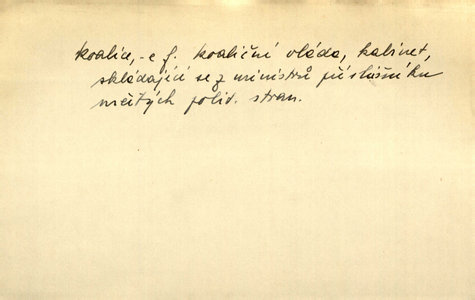 koalice, -e f. koaliční vláda, kabinet,
skládající se z ministrů příslušníků
určitých polit. stran.